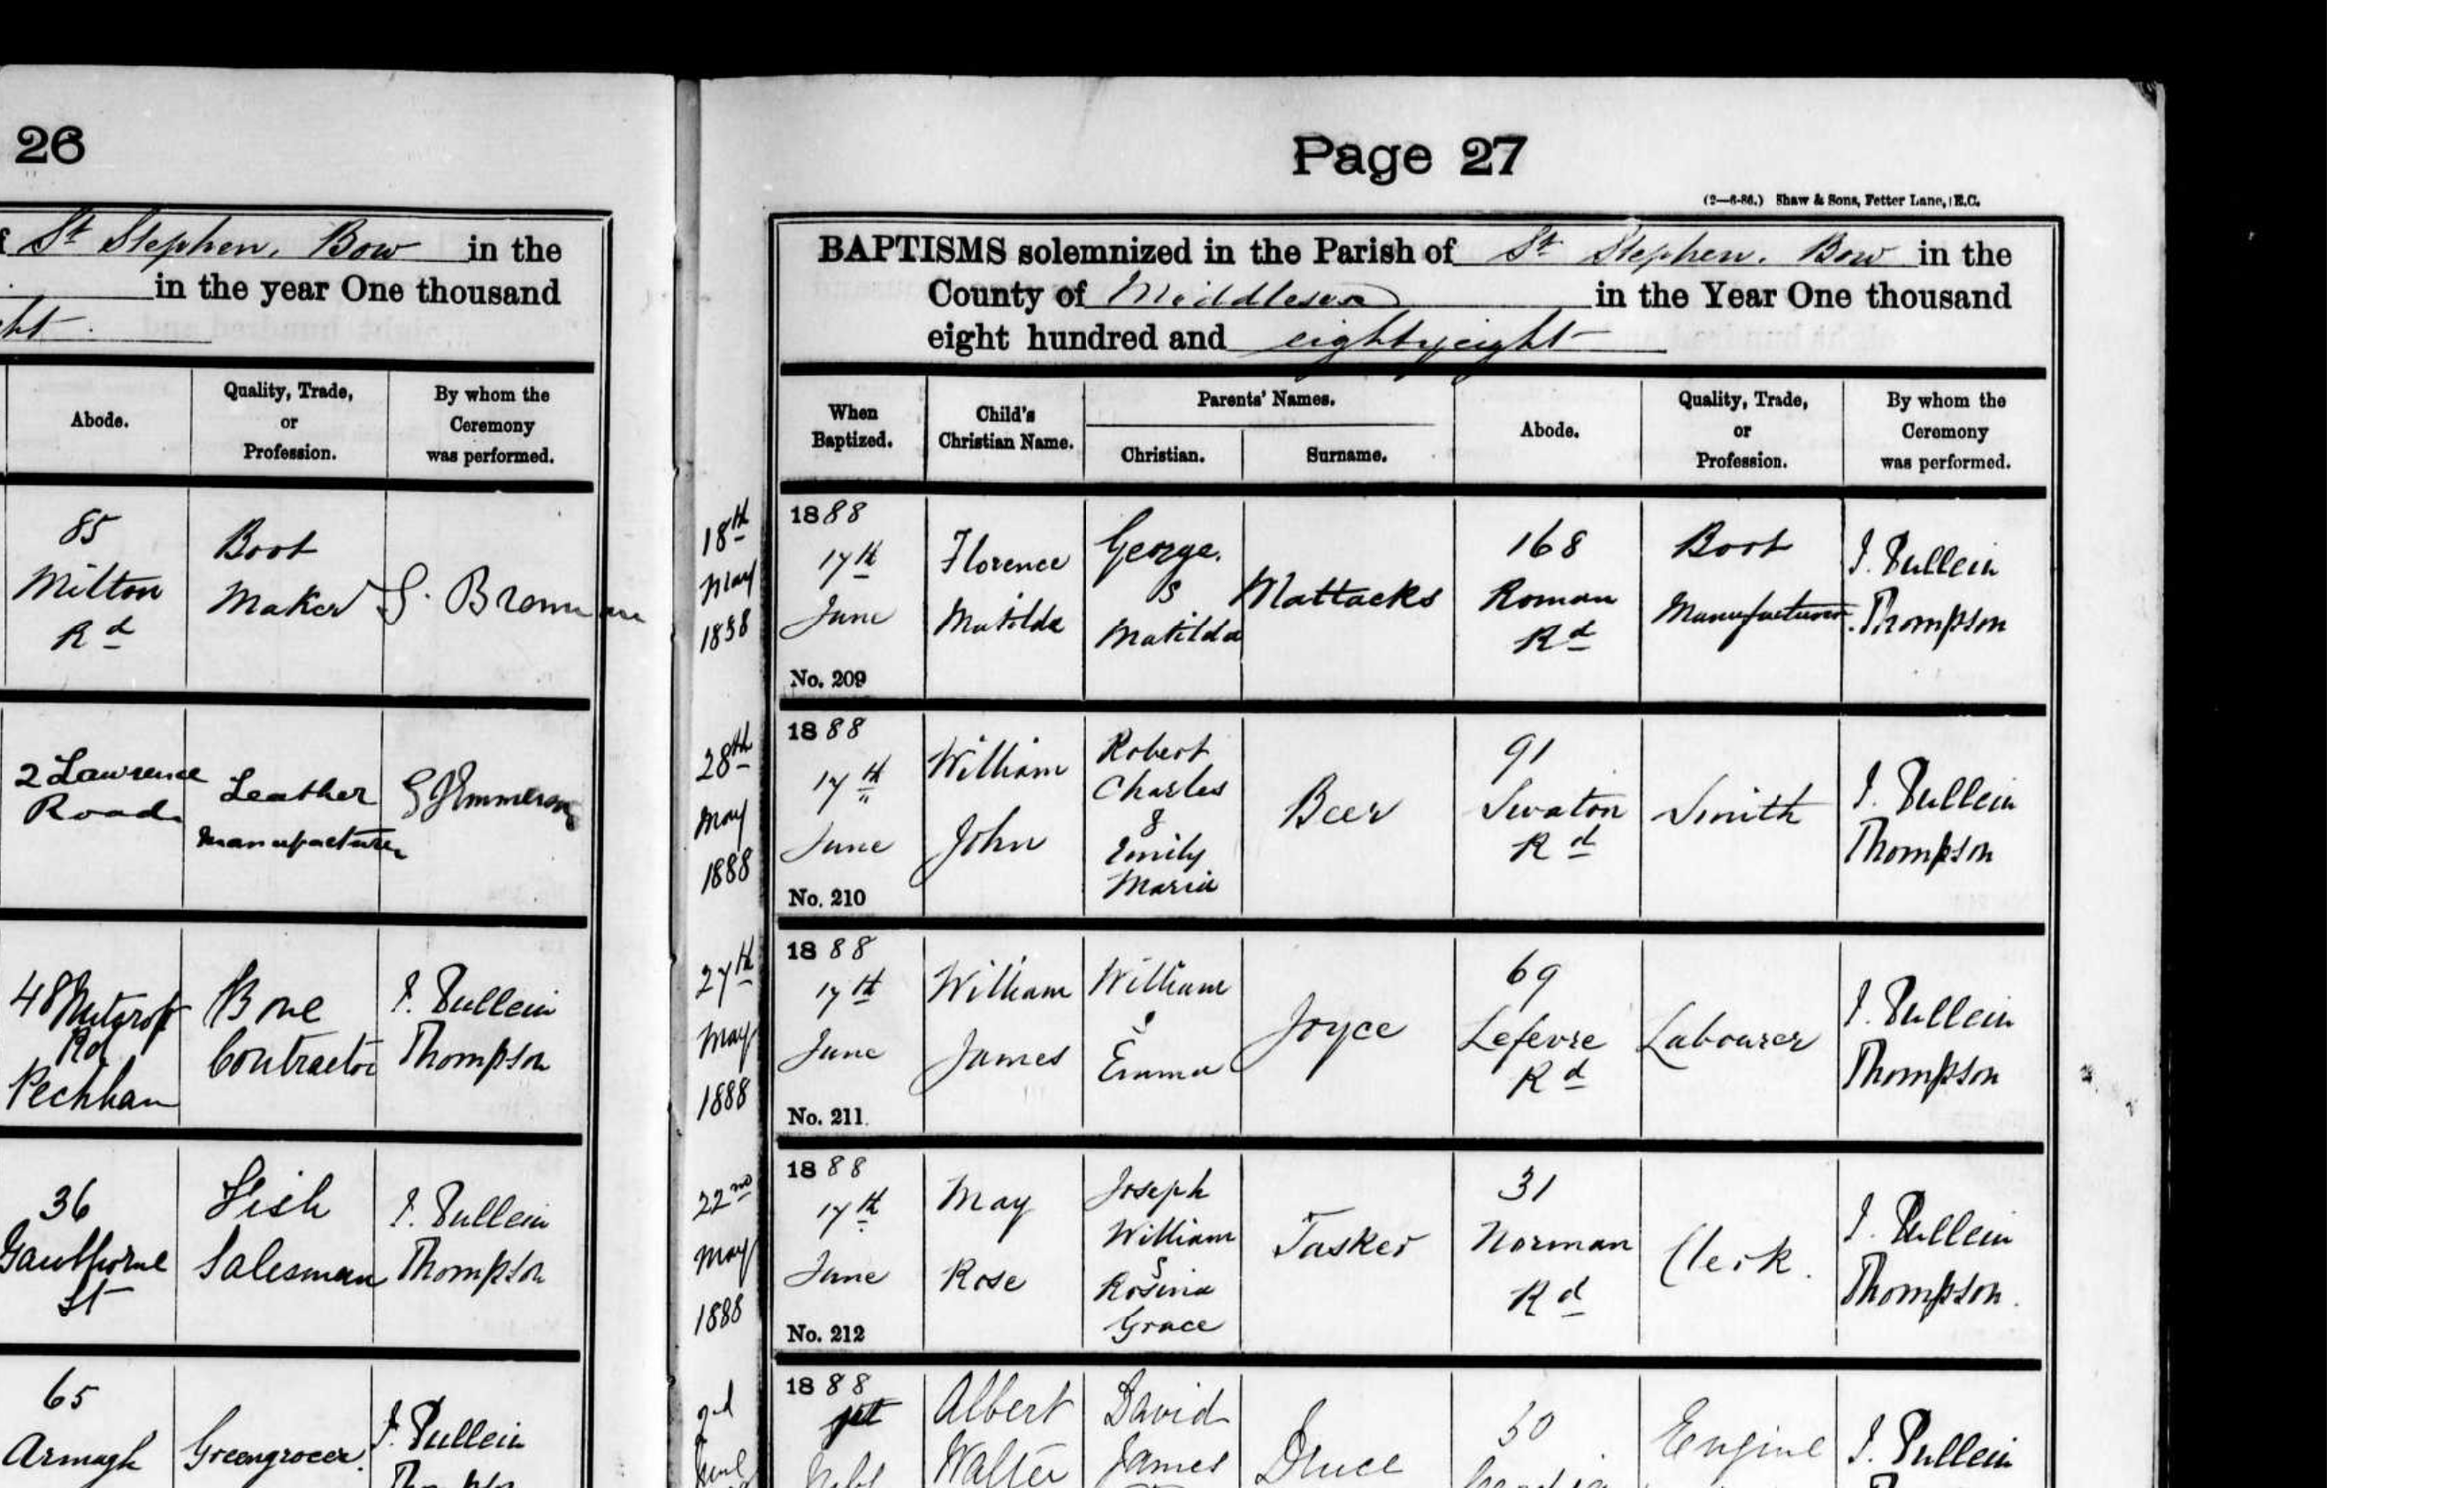 26
St Stephen, Bow in the
in the year One thousand
Abode.
Quality, Trade,
or
Profession.
By whom the
Ceremony
was performed.
85
Milton
Rd
Boot
Maker
2 Lawrence
Road
Leather
Manufacturer
48
Rd
Peckham
Bone
Contractor
J. Pullein
Thompson
36
Gawthorne
St
Fish
Salesman
J. Pullein
Thompson
65
Armagh
Greengrocer.
J. Pullein
Page 27
(2—6-86.) Shaw & Sons, Fetter Lane, E.C.
BAPTISMS solemnized in the Parish of St Stephen. Bow in the
County of Middlesex in the Year One thousand
eight hundred and eightyeight
When
Baptized.
Child's
Christian Name.
Parents' Names.
Christian.
Surname.
Abode.
Quality, Trade,
or
Profession.
By whom the
Ceremony
was performed.
18th
May
1888
1888
17th
June
No. 209
Florence
Matilda
George.
&
Matilda
Mattacks
168
Roman
Rd
Boot
Manufacturer
J. Pullein
Thompson
28th
May
1888
1888
17th
June
No. 210
William
John
Robert
Charles
&
Emily
Maria
Beer
91
Swaton
Rd
Smith
J. Pullein
Thompson
27th
May
1888
1888
17th
June
No. 211.
William
James
William
&
Emma
Joyce
69
Lefevre
Rd
Labourer
J. Pullein
Thompson
22nd
May
1888
1888
17th
June
No. 212
May
Rose
Joseph
William
&
Rosina
Grace
Tasker
31
Norman
Rd
Clerk.
J. Pullein
Thompson.
2nd
June
1888
1st
Albert
Walter
David
James
Druce
50
Engine
J. Pullein